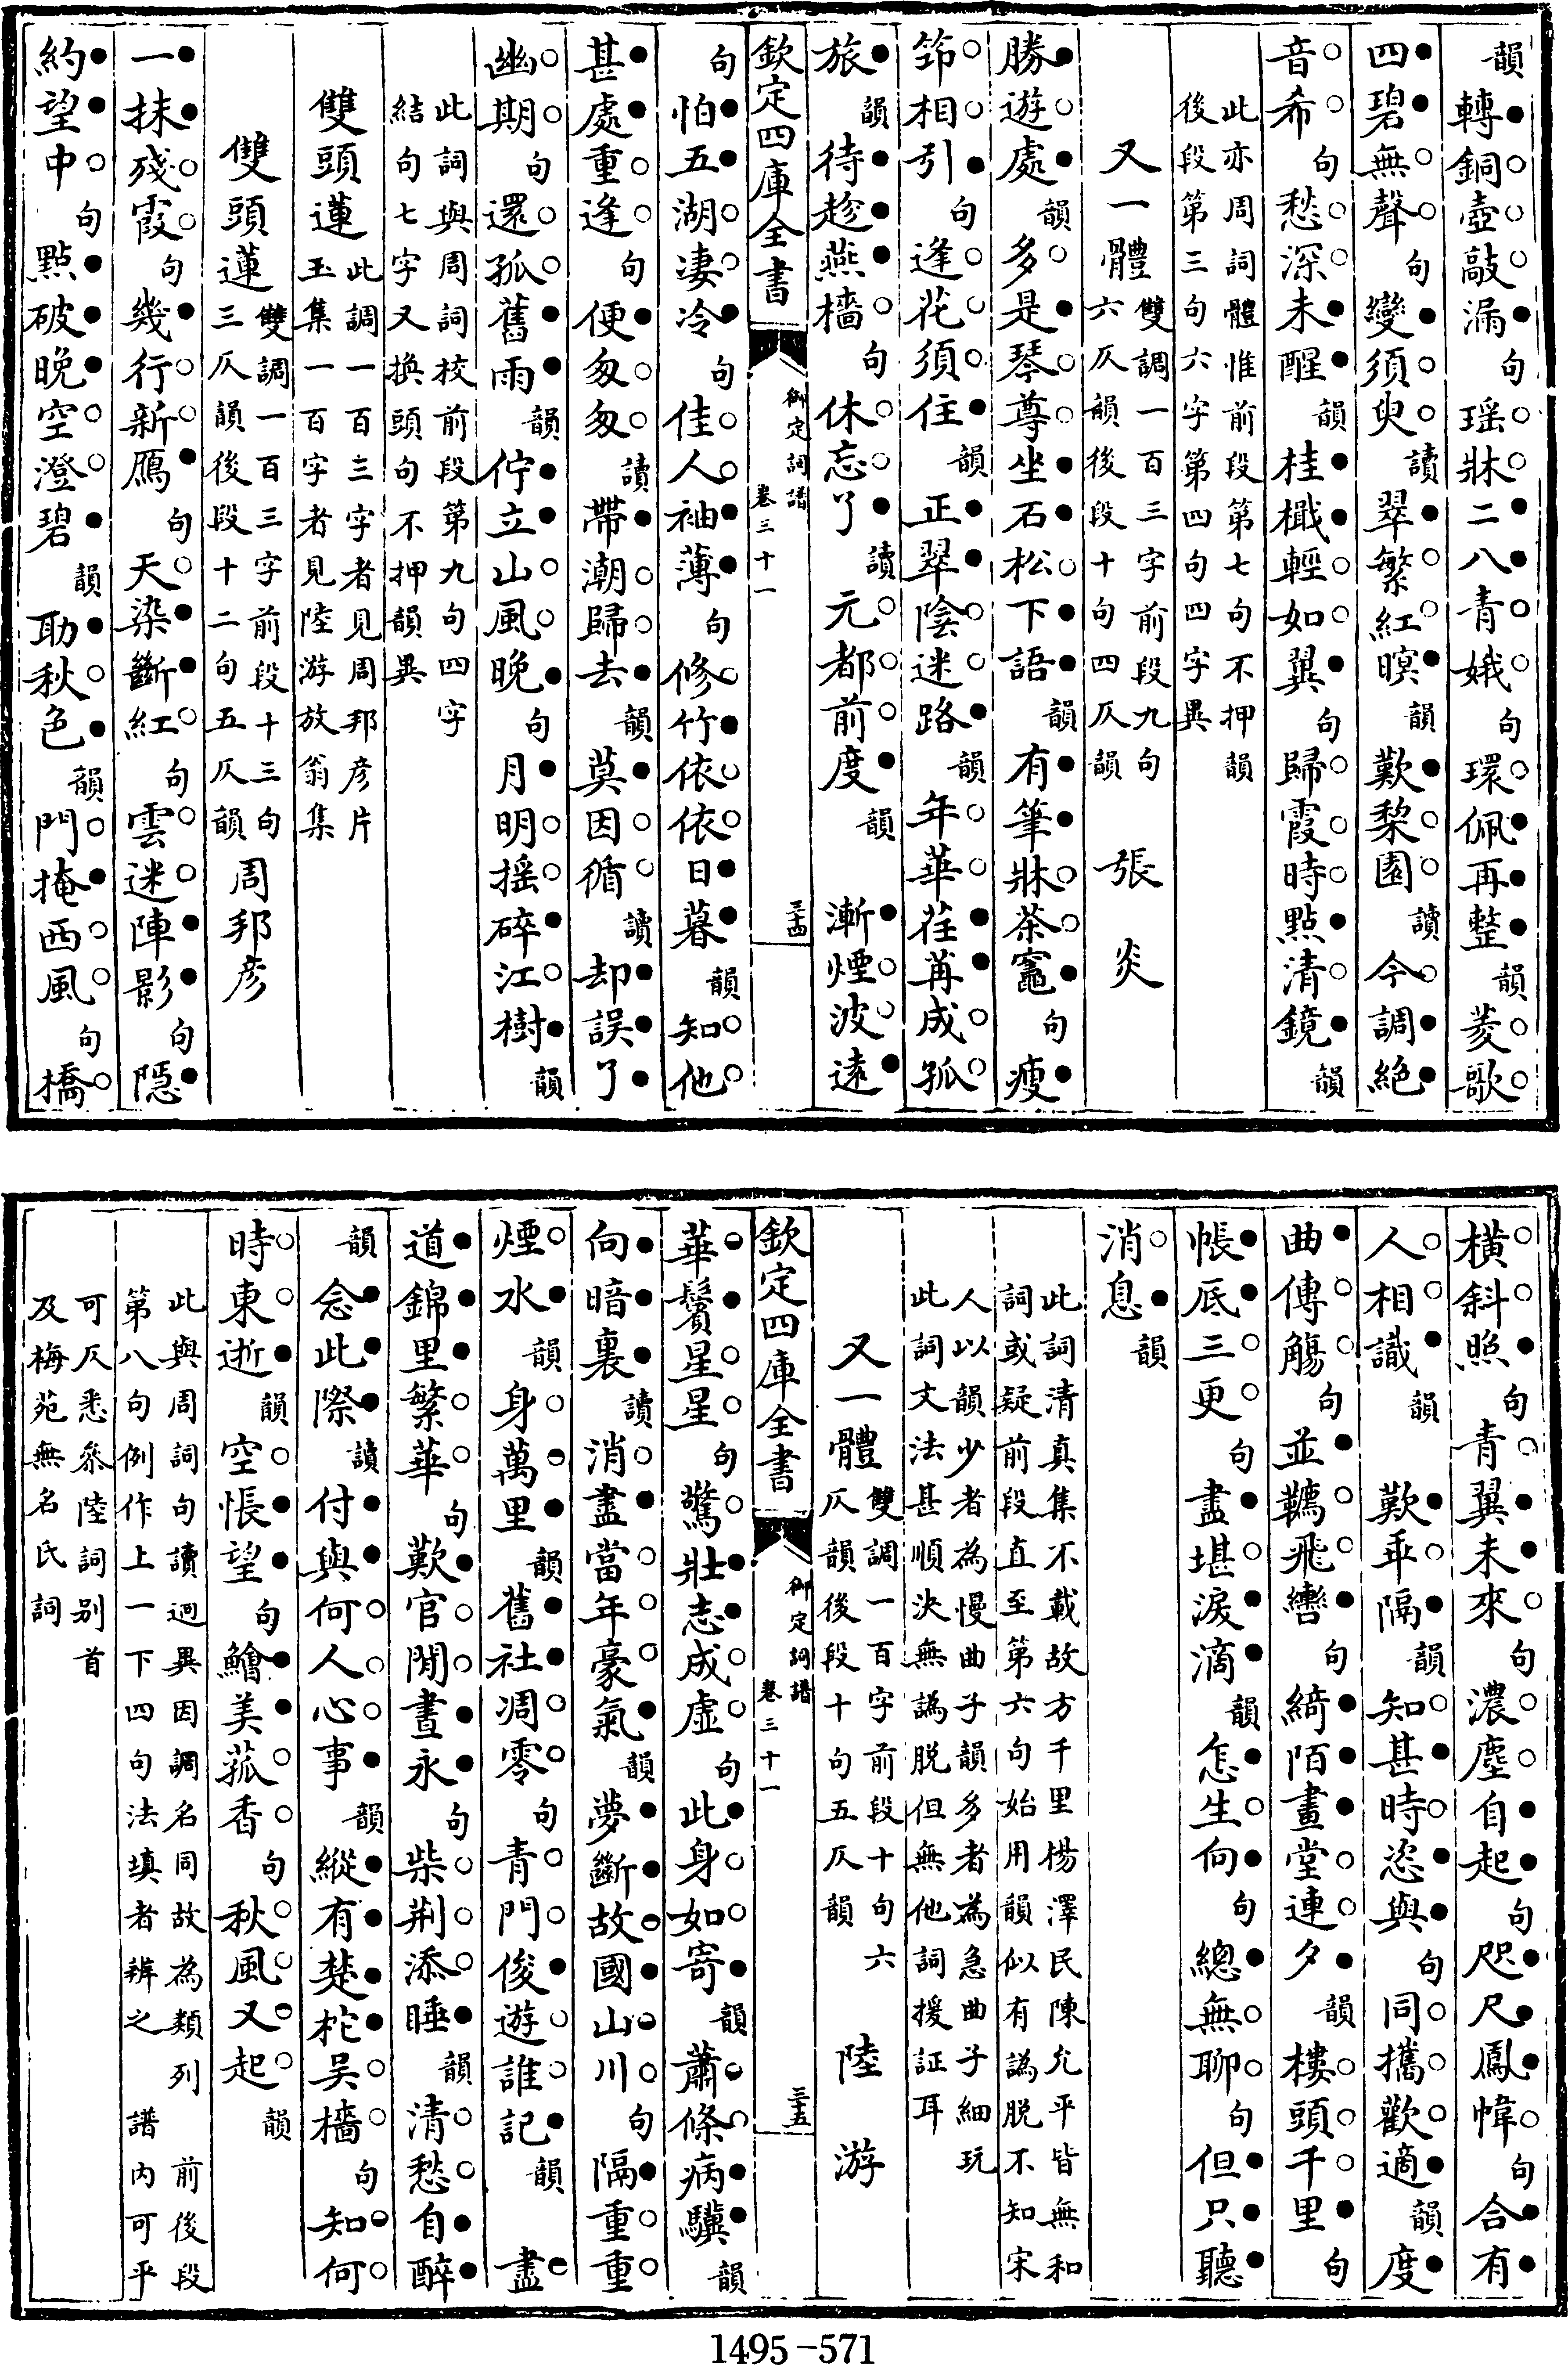 韻轉銅壺敲漏句瑶牀二八青娥句環佩再整韻菱歌
四碧無聲句變須臾讀翠繁紅暝韻歎棃園讀今調絶
音希句愁深未醒韻桂檝輕如翼句歸霞時點清鏡韻
此亦周詞體惟前段第七句不押韻
後段第三句六字第四句四字異
又一體 雙調一百三字前段九句
六仄韻後段十句四仄韻 張炎
勝遊處韻多是琴尊坐石松下語韻有筆牀茶竈句瘦
筇相引句逢花須住韻正翠陰迷路韻年華荏苒成孤
旅韻待趁燕檣句休忘了讀元都前度韻 漸煙波遠
欽定四庫全書 御定詞譜 卷三十一 三十四
句怕五湖凄冷句佳人袖薄句修竹依依日暮韻知他
甚處重逢句便匆匆讀帶潮歸去韻莫因循讀却誤了
幽期句還孤舊雨韻佇立山風晚句月明摇碎江樹韻
此詞與周詞校前段第九句四字
結句七字又換頭句不押韻異
雙頭蓮 此調一百三字者見周邦彦片
玉集一百字者見陸游放翁集
雙頭蓮 雙調一百三字前段十三句
三仄韻後段十二句五仄韻 周邦彦
一抹殘霞句幾行新鴈句天染斷紅句雲迷陣影句隱
約望中句點破晚空澄碧韻助秋色韻門掩西風句橋
横斜照句青翼未來句濃塵自起句咫尺鳳幃句合有
人相識韻 歎乖隔韻知甚時恣與句同攜歡適韻度
曲傳觴句並鞲飛轡句綺陌畫堂連夕韻樓頭千里句
帳底三更句盡堪淚滴韻怎生向句總無聊句但只聽
消息韻
此詞清真集不載故方千里楊澤民陳允平皆無和
詞或疑前段直至第六句始用韻似有譌脱不知宋
人以韻少者為慢曲子韻多者為急曲子細玩
此詞文法甚順決無譌脱但無他詞援証耳
又一體 雙調一百字前段十句六
仄韻後段十句五仄韻 陸游
欽定四庫全書 御定詞譜 卷三十一 三十五
華鬢星星句驚壯志成虛句此身如寄韻蕭條病驥韻
向暗裏讀消盡當年豪氣韻夢斷故國山川句隔重重
煙水韻身萬里韻舊社凋零句青門俊遊誰記韻 盡
道錦里繁華句歎官閒晝永句柴荆添睡韻清愁自醉
韻念此際讀付與何人心事韻縱有楚柁吳檣句知何
時東逝韻空悵望句鱠美菰香句秋風又起韻
此與周詞句讀迥異因調名同故為類列 前後段
第八句例作上一下四句法填者辨之 譜内可平
可仄悉叅陸詞别首
及梅苑無名氏詞
1495-571